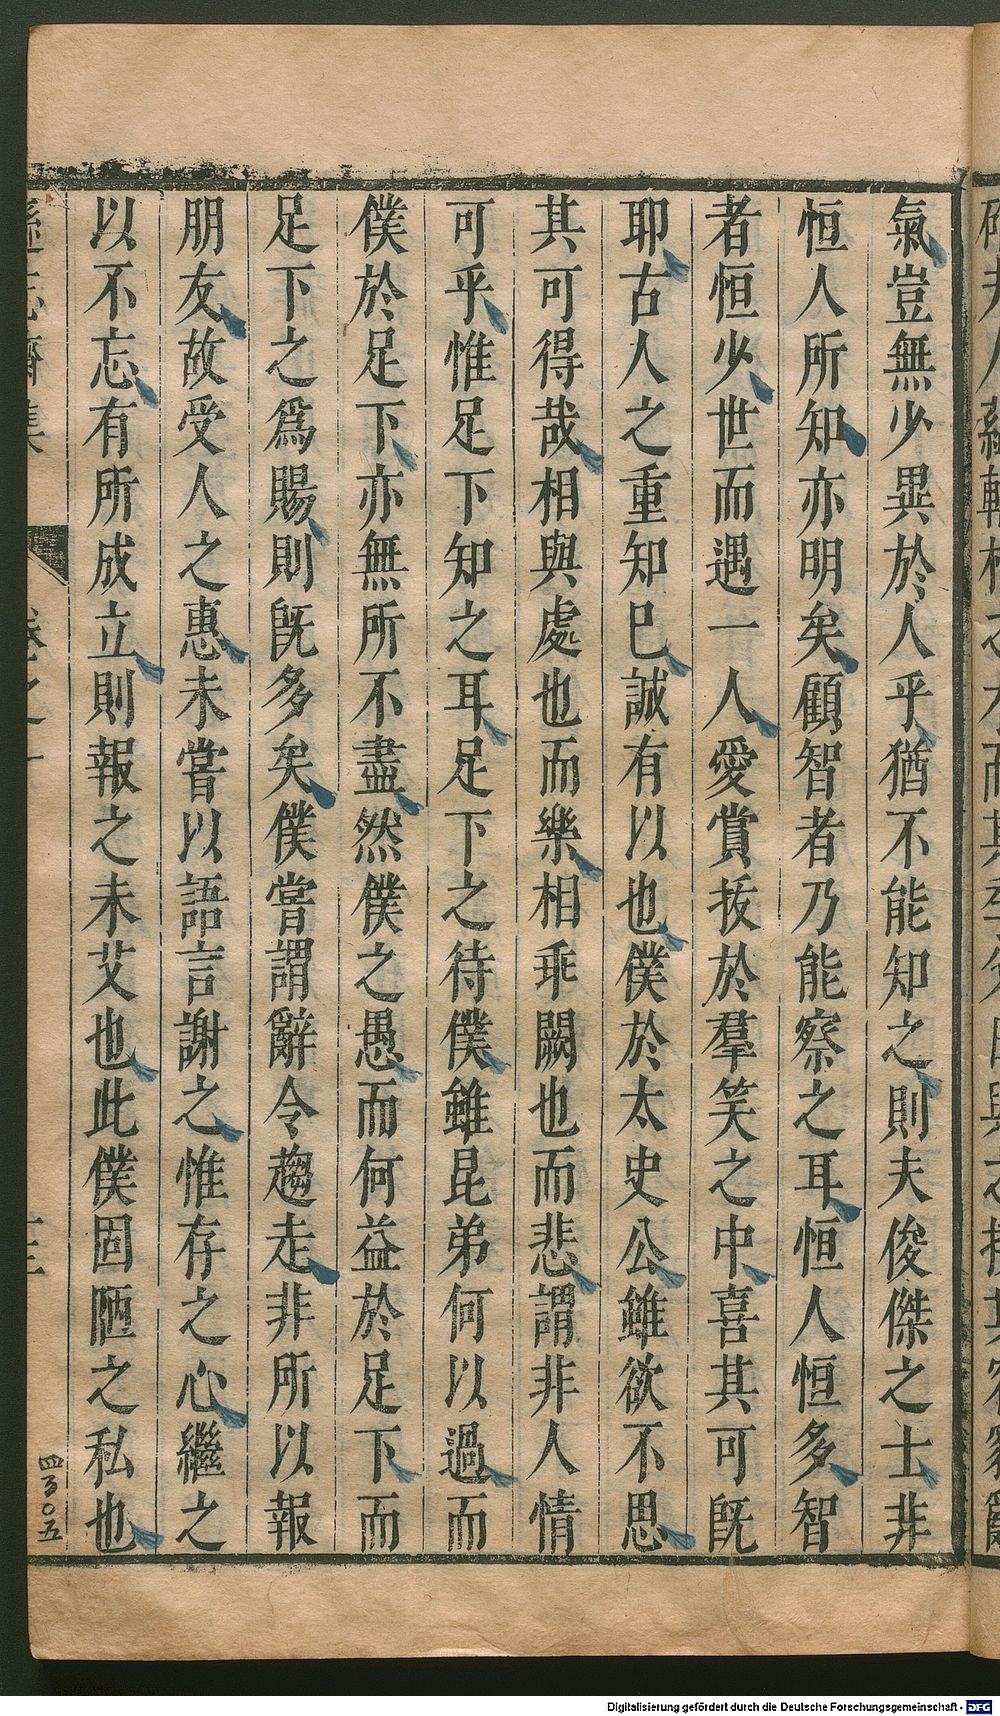 氣豈無少異於人乎猶不能知之則夫俊傑之士非
恒人所知亦明矣顧智者乃能察之耳恒人恒多智
者恒少世而遇一人愛賞拔於羣笑之中喜其可旣
耶古人之重知巳誠有以也僕於太史公雖欲不思
其可得哉相與處也而樂相乖闕也而悲謂非人情
可乎惟足下知之耳足下之待僕雖昆弟何以過而
僕於足下亦無所不盡然僕之愚而何益於足下而
足下之爲賜則旣多矣僕嘗謂辭令趨走非所以報
朋友故受人之惠未嘗以語言謝之惟存之心繼之
以不忘有所成立則報之未艾也此僕固陋之私也
遜志齋集 卷之十
四百〇五
Digitalisierung gefördert durch die Deutsche Forschungsgemeinschaft - DFG